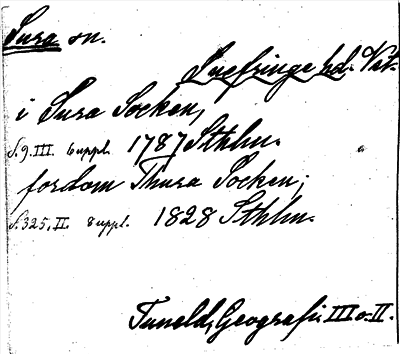 Sura sn.
Snefringe hd. Vstm.
i Sura Socken,
S. 9. III. 6 uppl. 1787 Sthlm.
fordom Thura Socken;
S. 325, II. 8 uppl. 1828 Sthlm.
Tunelds Geografi III o. II.